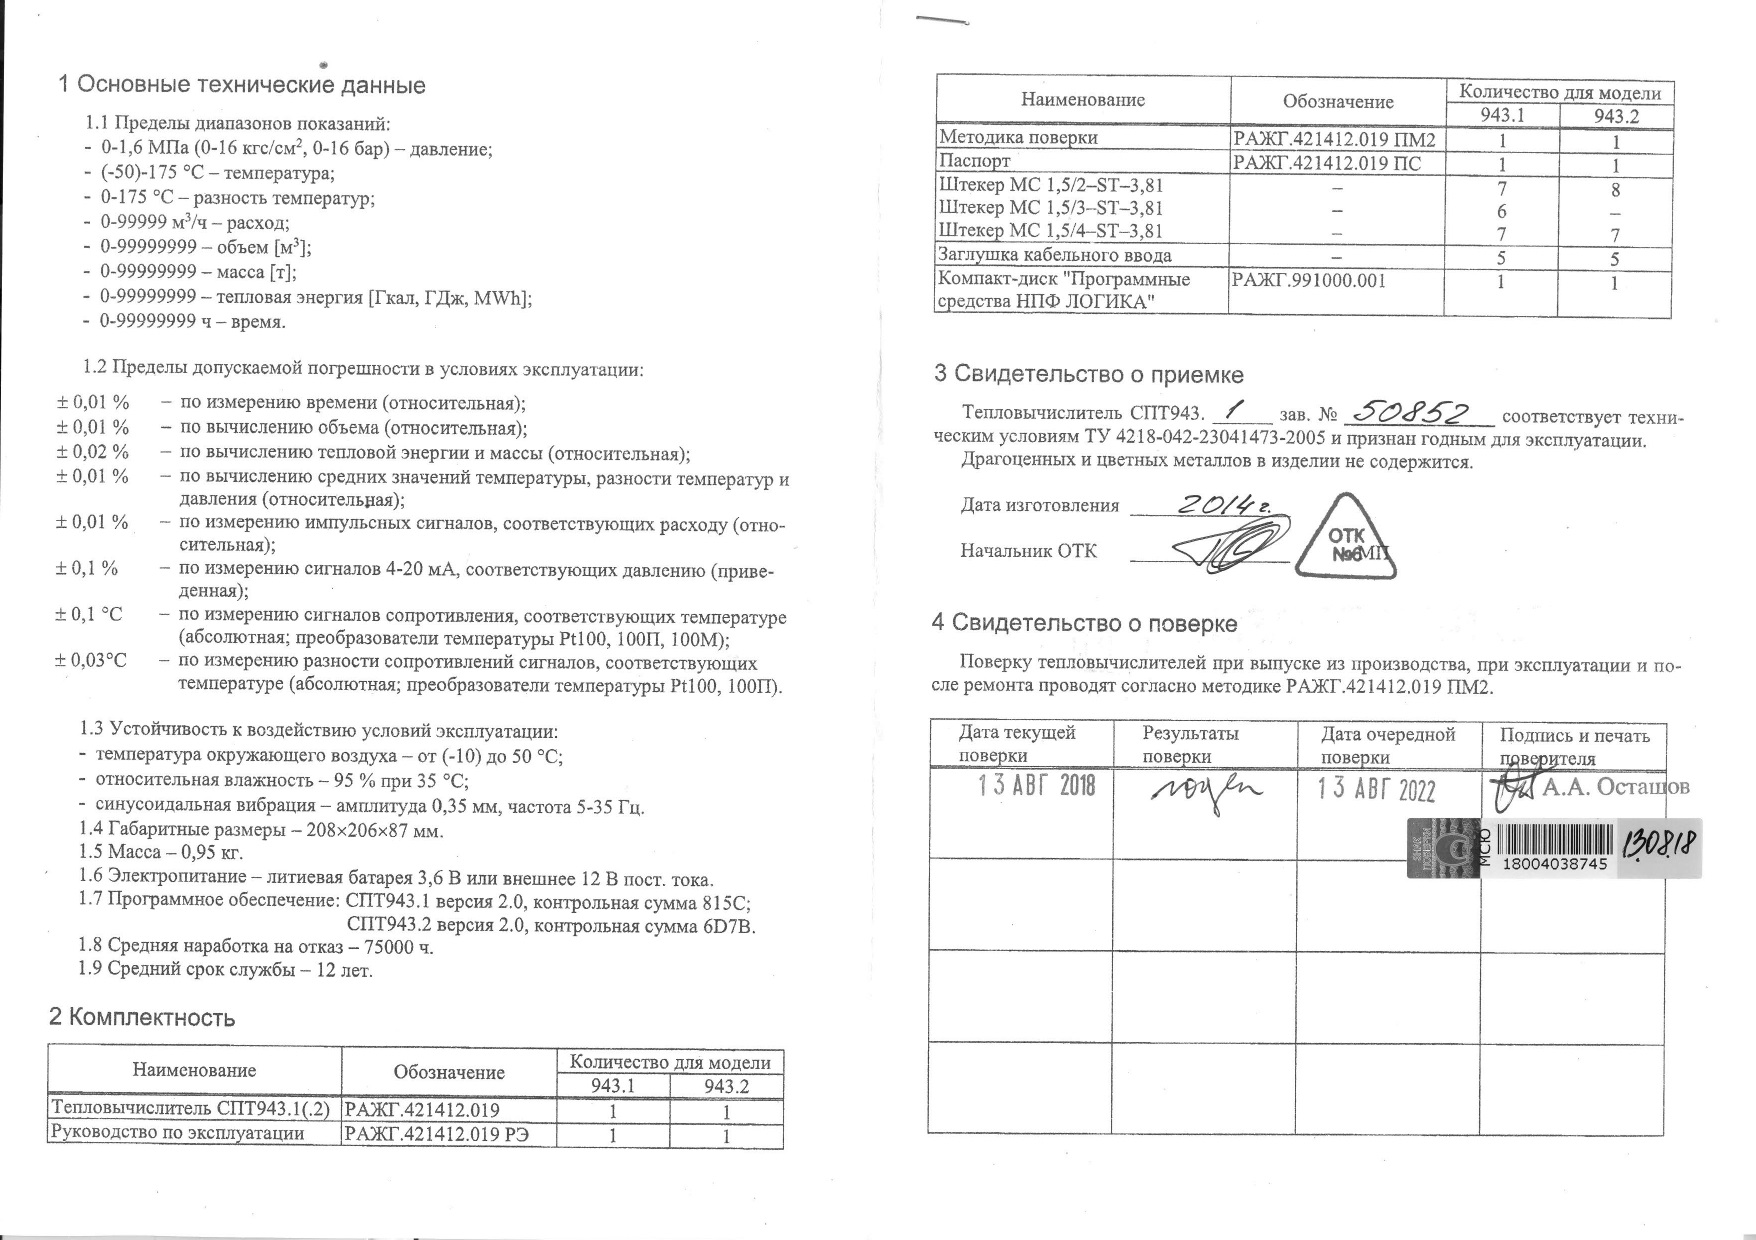 1 Основные технические данные
1.1 Пределы диапазонов показаний:
- 0-1,6 МПа (0-16 кгс/см², 0-16 бар) – давление;
- (-50)-175 °C – температура;
- 0-175 °C – разность температур;
- 0-99999 м³/ч – расход;
- 0-99999999 – объем [м³];
- 0-99999999 – масса [т];
- 0-99999999 – тепловая энергия [Гкал, ГДж, MWh];
- 0-99999999 ч – время.
1.2 Пределы допускаемой погрешности в условиях эксплуатации:
± 0,01 % – по измерению времени (относительная);
± 0,01 % – по вычислению объема (относительная);
± 0,02 % – по вычислению тепловой энергии и массы (относительная);
± 0,01 % – по вычислению средних значений температуры, разности температур и
давления (относительная);
± 0,01 % – по измерению импульсных сигналов, соответствующих расходу (отно-
сительная);
± 0,1 % – по измерению сигналов 4-20 мА, соответствующих давлению (приве-
денная);
± 0,1 °C – по измерению сигналов сопротивления, соответствующих температуре
(абсолютная; преобразователи температуры Pt100, 100П, 100М);
± 0,03°C – по измерению разности сопротивлений сигналов, соответствующих
температуре (абсолютная; преобразователи температуры Pt100, 100П).
1.3 Устойчивость к воздействию условий эксплуатации:
- температура окружающего воздуха – от (-10) до 50 °C;
- относительная влажность – 95 % при 35 °C;
- синусоидальная вибрация – амплитуда 0,35 мм, частота 5-35 Гц.
1.4 Габаритные размеры – 208×206×87 мм.
1.5 Масса – 0,95 кг.
1.6 Электропитание – литиевая батарея 3,6 В или внешнее 12 В пост. тока.
1.7 Программное обеспечение: СПТ943.1 версия 2.0, контрольная сумма 815C;
СПТ943.2 версия 2.0, контрольная сумма 6D7B.
1.8 Средняя наработка на отказ – 75000 ч.
1.9 Средний срок службы – 12 лет.
2 Комплектность
Наименование Обозначение Количество для модели
943.1 943.2
Тепловычислитель СПТ943.1(.2) РАЖГ.421412.019 1 1
Руководство по эксплуатации РАЖГ.421412.019 РЭ 1 1
Наименование Обозначение Количество для модели
943.1 943.2
Методика поверки РАЖГ.421412.019 ПМ2 1 1
Паспорт РАЖГ.421412.019 ПС 1 1
Штекер МС 1,5/2–ST–3,81 – 7 8
Штекер МС 1,5/3–ST–3,81 – 6 –
Штекер МС 1,5/4–ST–3,81 – 7 7
Заглушка кабельного ввода – 5 5
Компакт-диск "Программные РАЖГ.991000.001 1 1
средства НПФ ЛОГИКА"
3 Свидетельство о приемке
Тепловычислитель СПТ943. 1 зав. № 50852 соответствует техни-
ческим условиям ТУ 4218-042-23041473-2005 и признан годным для эксплуатации.
Драгоценных и цветных металлов в изделии не содержится.
Дата изготовления 2014 г.
Начальник ОТК
ОТК
№6 МП
4 Свидетельство о поверке
Поверку тепловычислителей при выпуске из производства, при эксплуатации и по-
сле ремонта проводят согласно методике РАЖГ.421412.019 ПМ2.
Дата текущей Результаты Дата очередной Подпись и печать
поверки поверки поверки поверителя
13 АВГ 2018 годен 13 АВГ 2022 А.А. Осташов
МСЮ 130818
18004038745